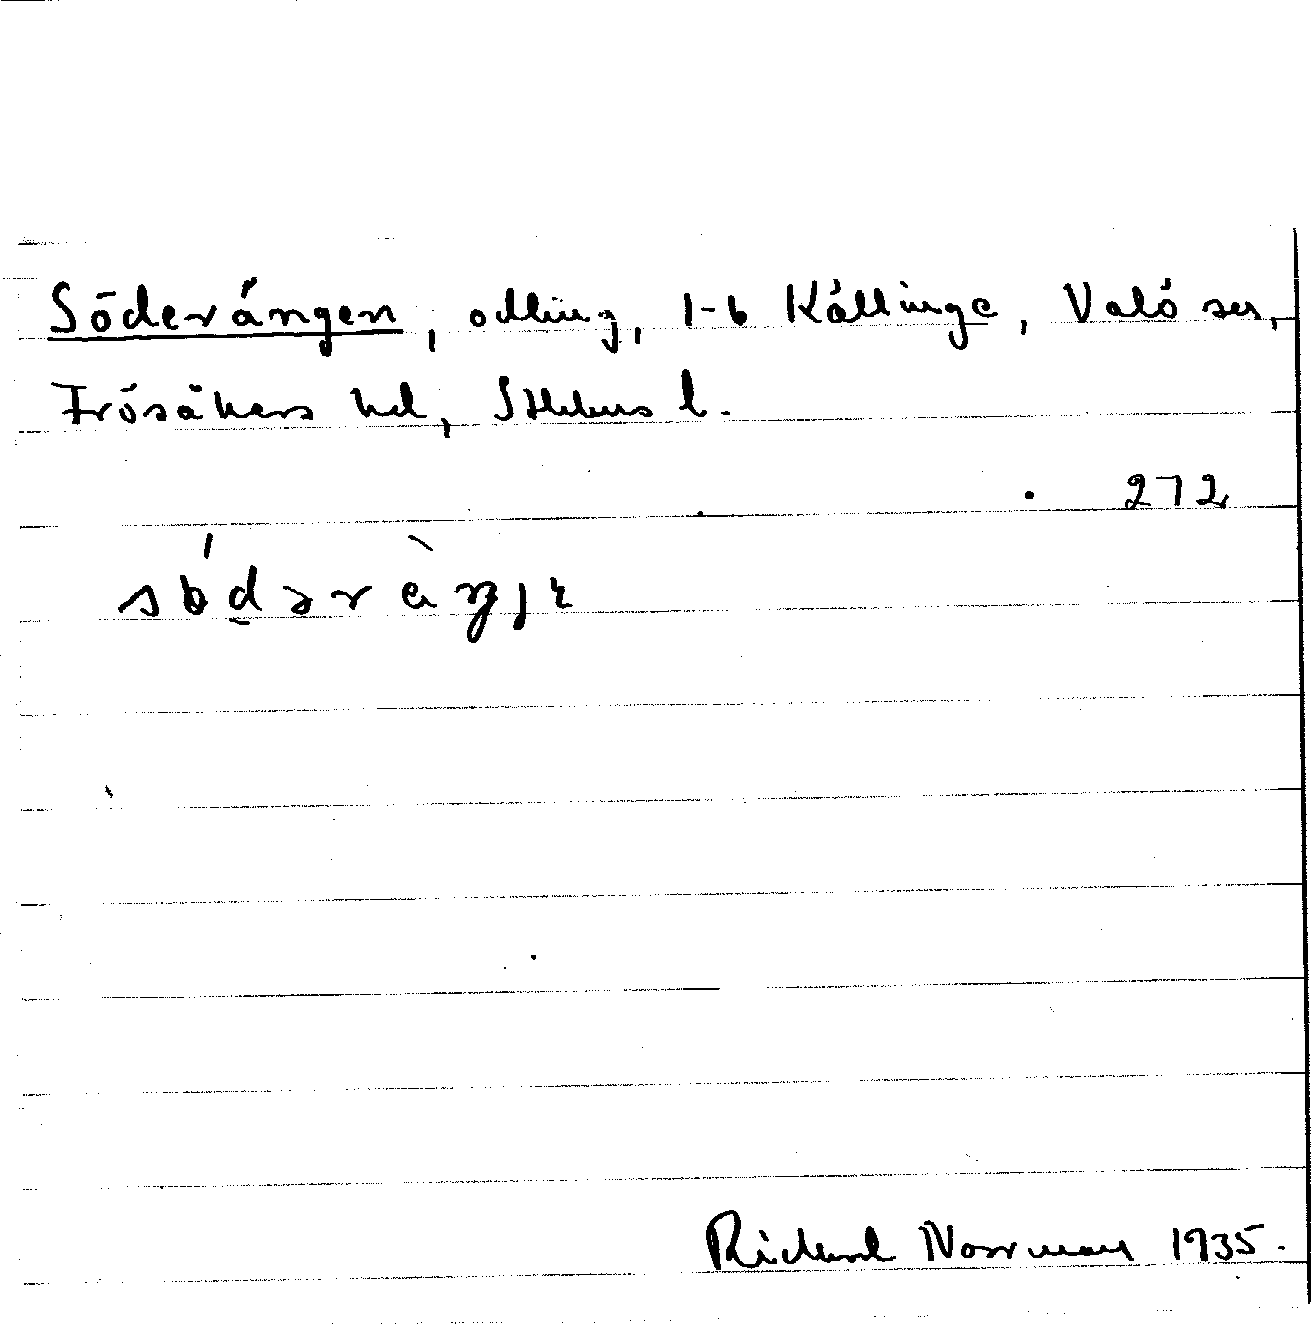 Söderängen, odling, 1-6 Källinge, Valö sn,
Frösåkers hd, Sthlms l.
272
Richard Norrman 1935.